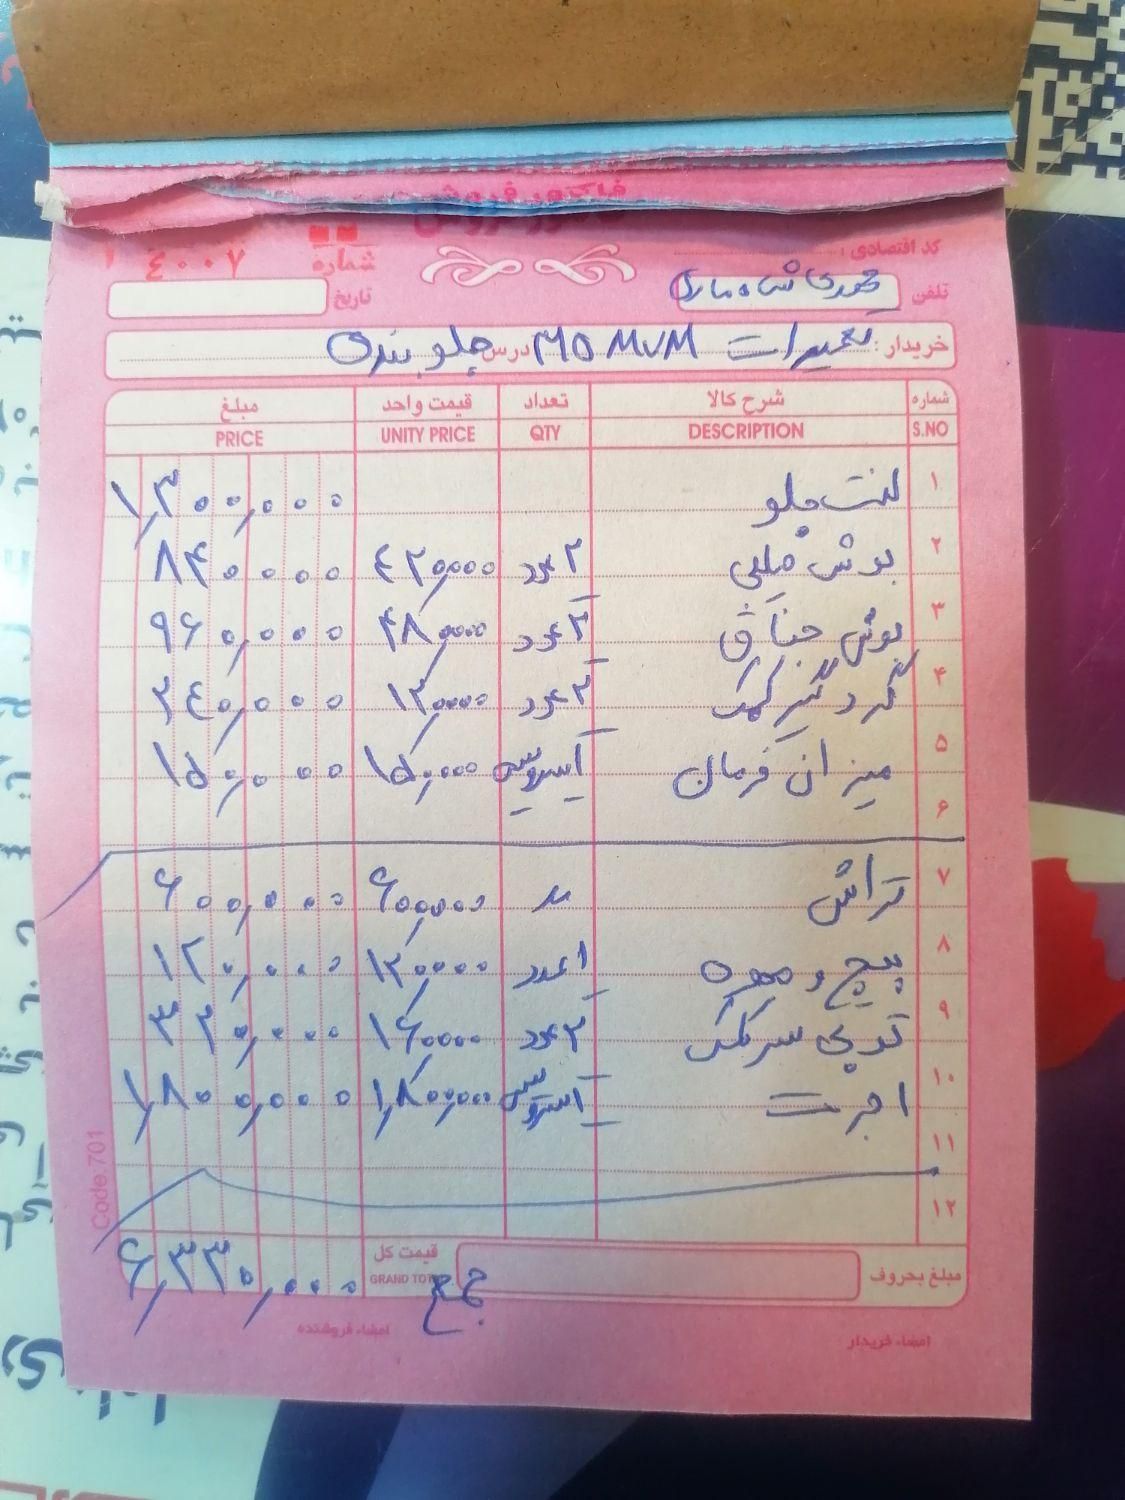 فاکتور فروش
کد اقتصادی :
شماره ۱۴۰۰۷
تلفن مهدی شاه مرادی
تاریخ
خریدار: تعمیرات MVM ۳۱۵ درس جلو بندی
شماره شرح کالا تعداد قیمت واحد مبلغ
S.NO DESCRIPTION QTY UNITY PRICE PRICE
۱ لنت جلو ۱,۳۰۰,۰۰۰
۲ بوش طبق ۲ عدد ۴۲۰,۰۰۰ ۸۴۰,۰۰۰
۳ بوش جناقی ۲ عدد ۴۸۰,۰۰۰ ۹۶۰,۰۰۰
۴ گردگیر کمک ۲ عدد ۱۲۰,۰۰۰ ۲۴۰,۰۰۰
۵ میزان فرمان ۱ سرویس ۱۵۰,۰۰۰ ۱۵۰,۰۰۰
۶
۷ تراش ۶۰۰,۰۰۰ ۶۰۰,۰۰۰
۸ پیچ و مهره ۱ عدد ۱۲۰,۰۰۰ ۱۲۰,۰۰۰
۹ توپی سرکمک ۲ عدد ۱۶۰,۰۰۰ ۳۲۰,۰۰۰
۱۰ اجرت ۱ سرویس ۱,۸۰۰,۰۰۰ ۱,۸۰۰,۰۰۰
۱۱
۱۲
مبلغ بحروف جمع قیمت کل ۶,۳۳۰,۰۰۰
GRAND TOTAL
امضاء خریدار امضاء فروشنده
Code:701